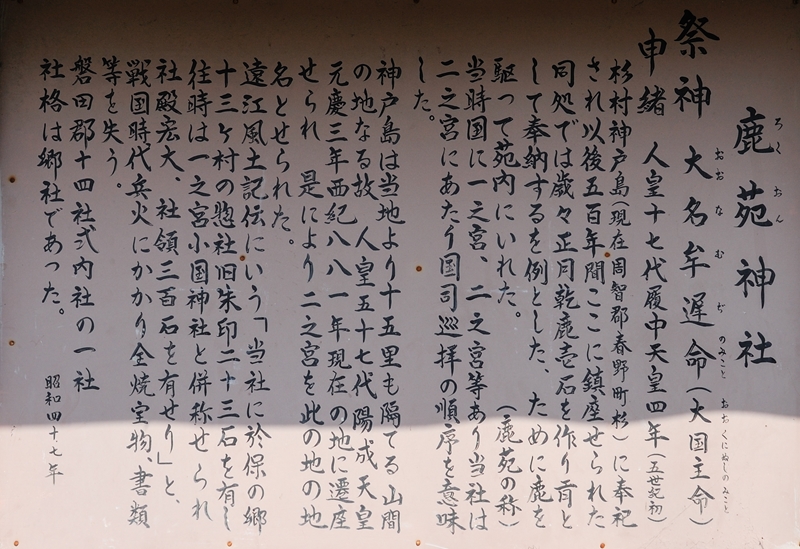 鹿苑神社
ろくおん
祭神 大名牟遅命(大国主命)
おおなむぢのみこと おおくにぬしのみこと
申緒 人皇十七代履中天皇四年(五世紀初)
杉村神戸島(現在周智郡春野町杉)に奉祀
され以後五百年間ここに鎮座せられた
同処では歳々正月乾鹿壱石を作り苜と
して奉納するを例とした、ために鹿を
駆って苑内にいれた。 (鹿苑の称)
当時国に一之宮、二之宮等あり当社は
二之宮にあたり国司巡拝の順序を意味
した。
神戸島は当地より十五里も隔てる山間
の地なる故 人皇五十七代陽成天皇
元慶三年西紀八八一年現在の地に遷座
せられ 是により二之宮を此の地の地
名とせられた。
遠江風土記伝にいう「当社に於保の郷
十三ヶ村の惣社旧朱印二十三石を有し
往時は一之宮小国神社と併称せられ
社殿宏大、社領三百石を有せり」と、
戦国時代兵火にかかり全焼宝物、書類
等を失う。
磐田郡十四社式内社の一社
社格は郷社であった。
昭和四十七年